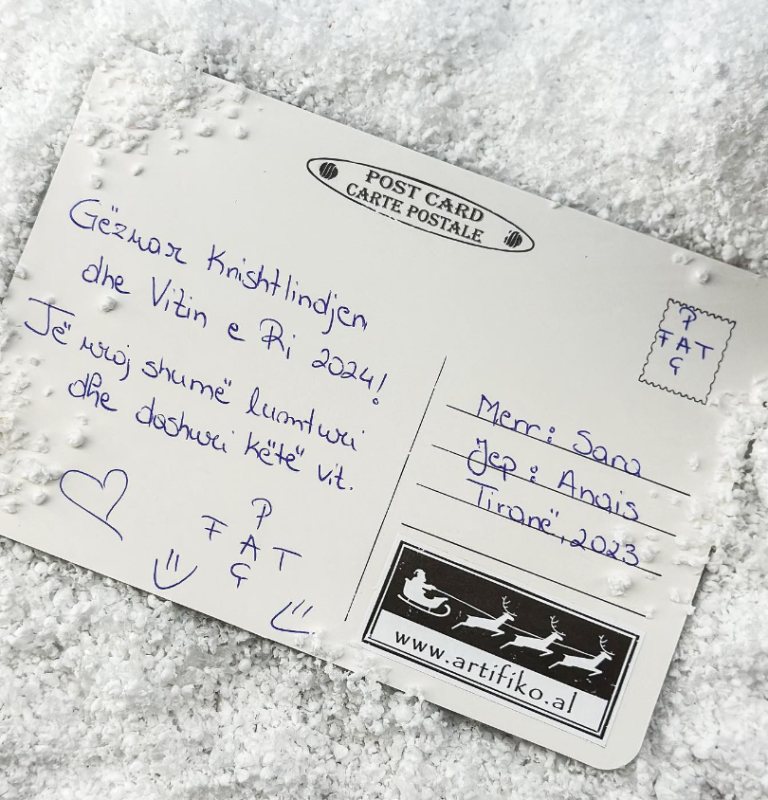 POST CARD
CARTE POSTALE
Gëzuar Krishtlindjen
dhe Vitin e Ri 2024!
Të uroj shumë lumturi
dhe dashuri këtë vit.
P
F A T
G
P
F A T
G
Merr: Sara
Jep: Anais
Tiranë, 2023
www.artifiko.al